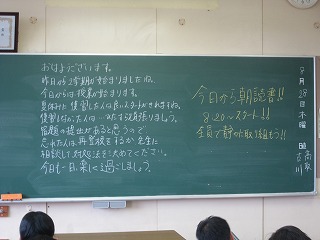 おはようございます。
昨日から2学期が始まりましたね。
今日からは授業が始まります。
夏休みに復習した人は良いスタートがきれますね。
復習しなかった人は…今日から頑張りましょう。
宿題の提出があると思うので
忘れた人は、再登校をするか先生に
相談して対処法を決めてください。
今日も一日、楽しく過ごしましょう。
今日から朝読書!!
8:20〜スタート!!
全員で静かに取り組もう!!
8月28日木曜
日直